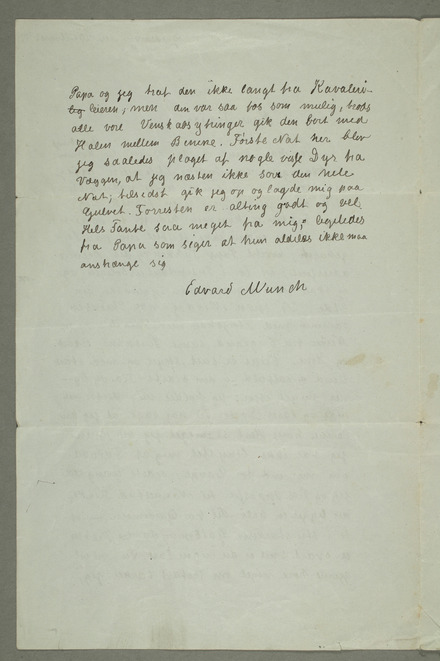 Papa og jeg traf den ikke langt fra Kavaleri-
leieren; men den var saa bøs som mulig, trods
alle vore Venskabsytringer gik den bort med
Halen mellem Benene. Første Nat her blev
jeg saaledes plaget af nogle vaje Dyr fra
Væggen, at jeg næsten ikke sov den hele
Nat; tilsidst gik jeg op og lagde mig paa
Gulvet. Forresten er alting godt og vel.
Hils Tante saa meget fra mig, ligeledes
fra Papa som seger at hun aldeles ikke maa
anstrænge sig
Edvard Munch